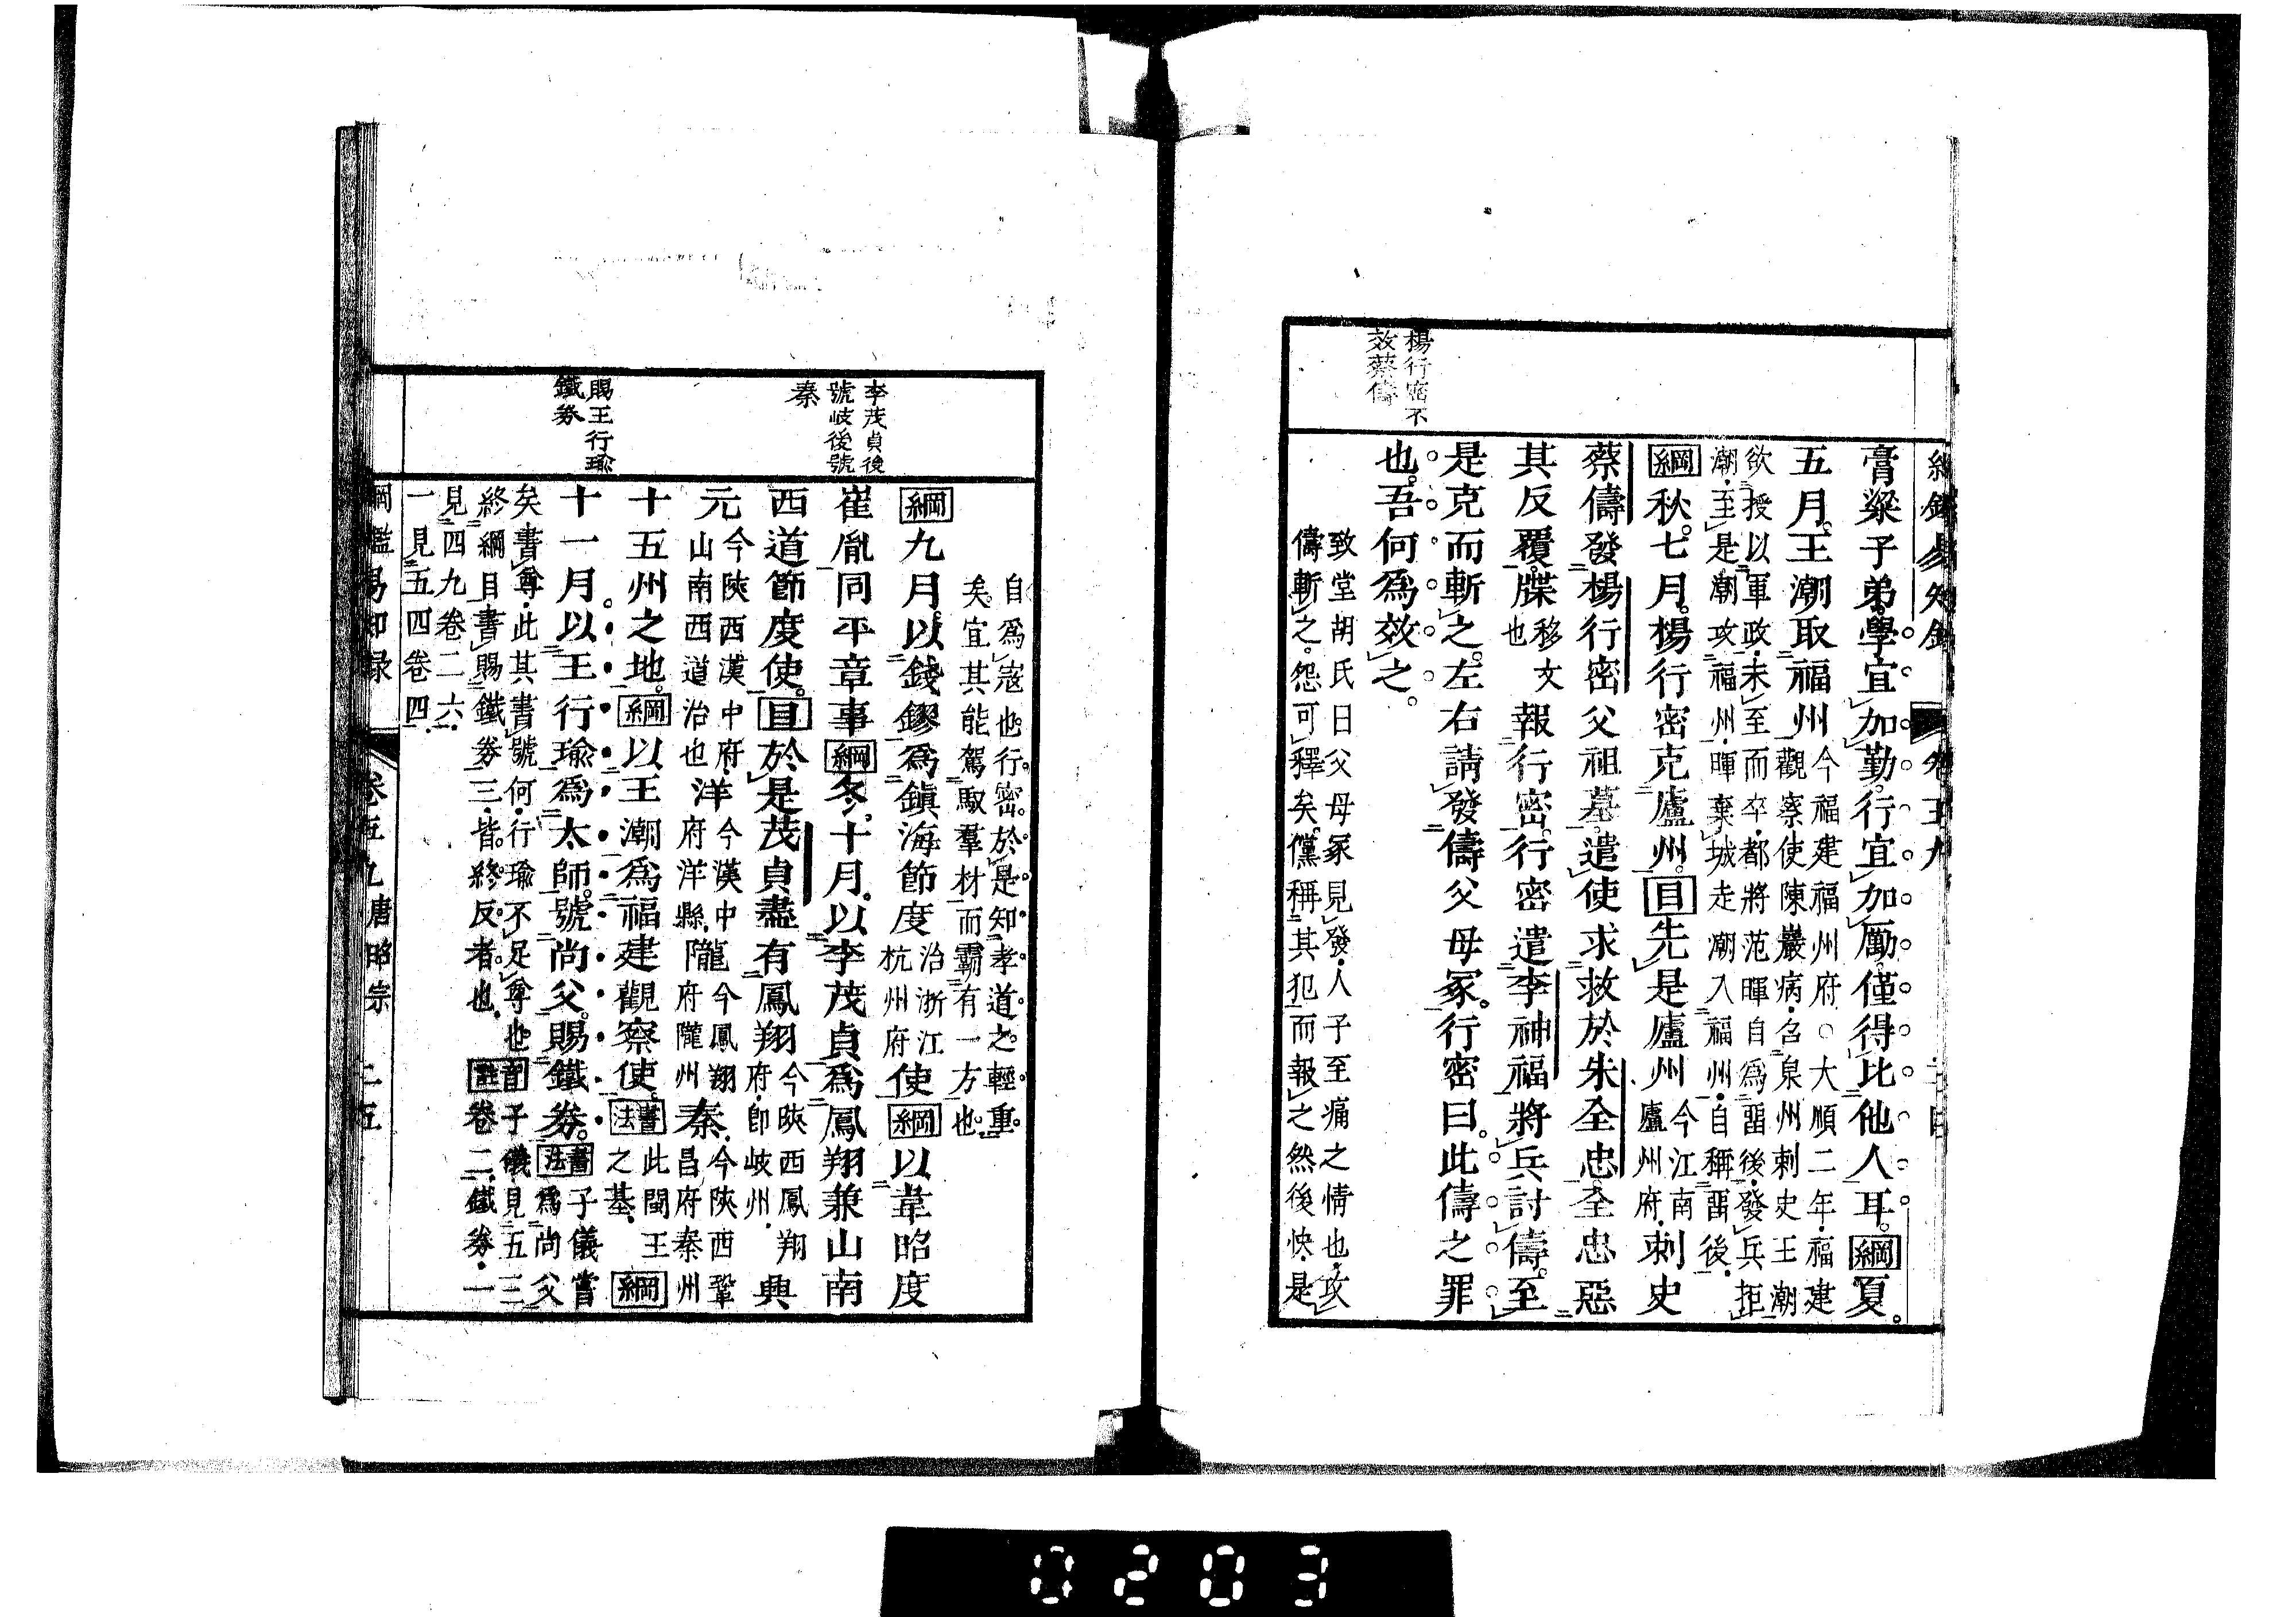 綱鑑易知錄 卷五九
楊行密不
效蔡儔
膏粱子弟。學宜加勤。行宜加勵。僅得比他人耳。綱夏。
五月。王潮取福州
今福建福州府○大順二年福建
觀察使陳巖病召泉州刺史王潮
欲授以軍政未至而卒都將范暉自爲畱後發兵拒
潮至是潮攻福州暉棄城走潮入福州自稱畱後
綱秋。七月。楊行密克廬州。目先是廬州
今江南
廬州府
刺史
蔡儔發楊行密父祖墓。遣使求救於朱全忠。全忠惡
其反覆。牒
移文
也
報行密。行密遣李神福將兵討儔。至
是克而斬之。左右請發儔父母冢。行密曰。此儔之罪
也。吾何爲效之。
致堂胡氏曰父母冢見發人子至痛之情也攻
儔斬之。怨可釋矣。儻稱其犯而報之然後快是
自爲寇也。行密於是知孝道之輕重
矣。宜其能駕馭羣材而霸有一方也。
李茂貞後
號岐後號
秦
賜王行瑜
鐵券
綱九月。以錢鏐爲鎭海節度
治浙江
杭州府
使綱以韋昭度
崔胤同平章事綱冬。十月。以李茂貞爲鳳翔兼山南
西道節度使。目於是茂貞盡有鳳翔
今陝西鳳翔
府卽岐州
興
元
今陝西漢中府
山南西道治也
洋
今漢中
府洋縣
隴
今鳳翔
府隴州
秦
今陝西鞏
昌府秦州
十五州之地。綱以王潮爲福建觀察使。書法
此閩王
之基
綱
十一月。以王行瑜爲太師。號尚父。賜鐵券。書法
子儀嘗
爲尚父
矣書尊此其書號何行瑜不足尊也目子儀見五三
終綱目書賜鐵券三皆終反者也註卷二鐵券一
見四九卷二六
一見五四卷四
綱鑑易知錄 卷五九 唐昭宗 二五
0203